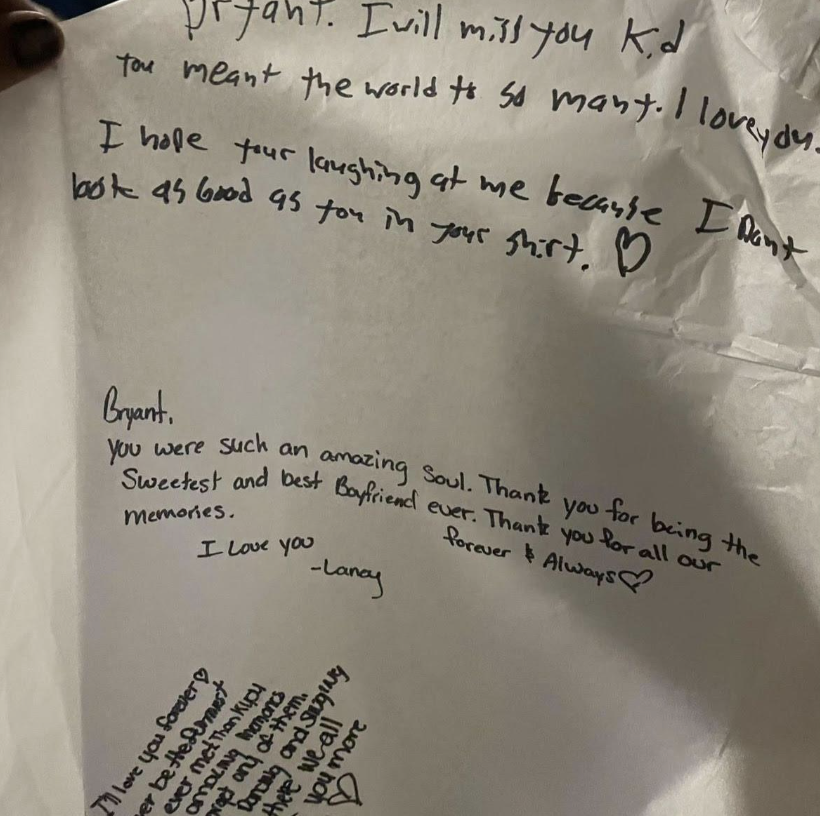 Bryant. I will miss you Kid
You meant the world to so many. I love you.
I hope your laughing at me because I Dont
look as Good as you in your shirt. ♡
Bryant,
You were such an amazing Soul. Thank you for being the
Sweetest and best Boyfriend ever. Thank you for all our
memories.
forever & Always♡
I Love you
-Laney
I'll love you forever♡
er be the funniest
ever met Thank you
amazing memories
any of them.
Dancing and Singing
there) We all
you more
♡